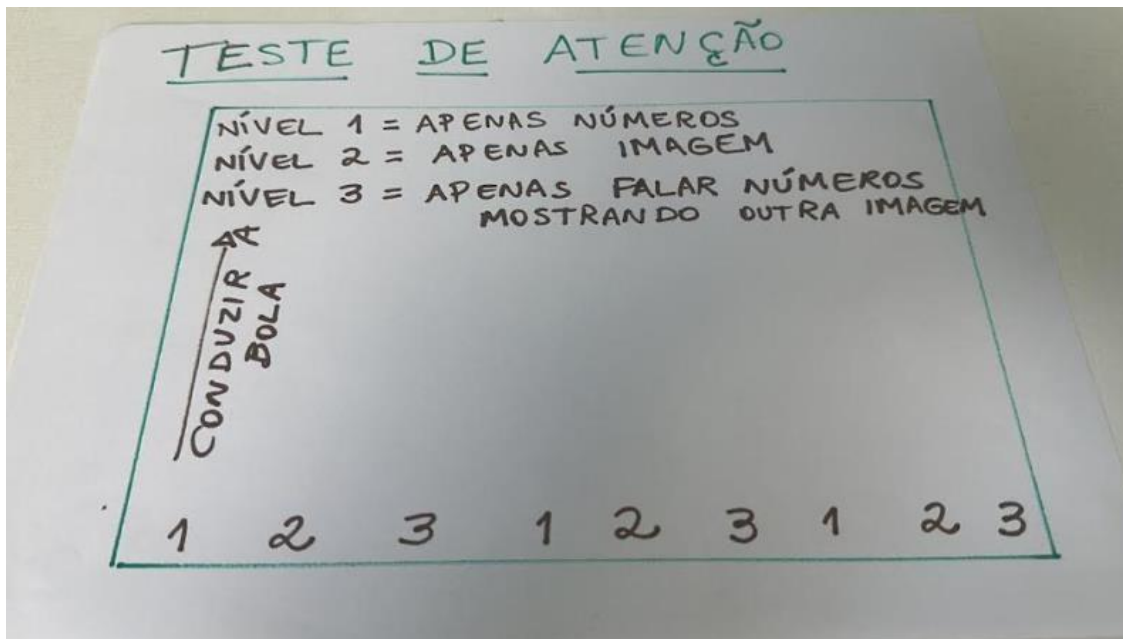 TESTE DE ATENÇÃO
NÍVEL 1 = APENAS NÚMEROS
NÍVEL 2 = APENAS IMAGEM
NÍVEL 3 = APENAS FALAR NÚMEROS
MOSTRANDO OUTRA IMAGEM
CONDUZIR A
BOLA
1 2 3 1 2 3 1 2 3